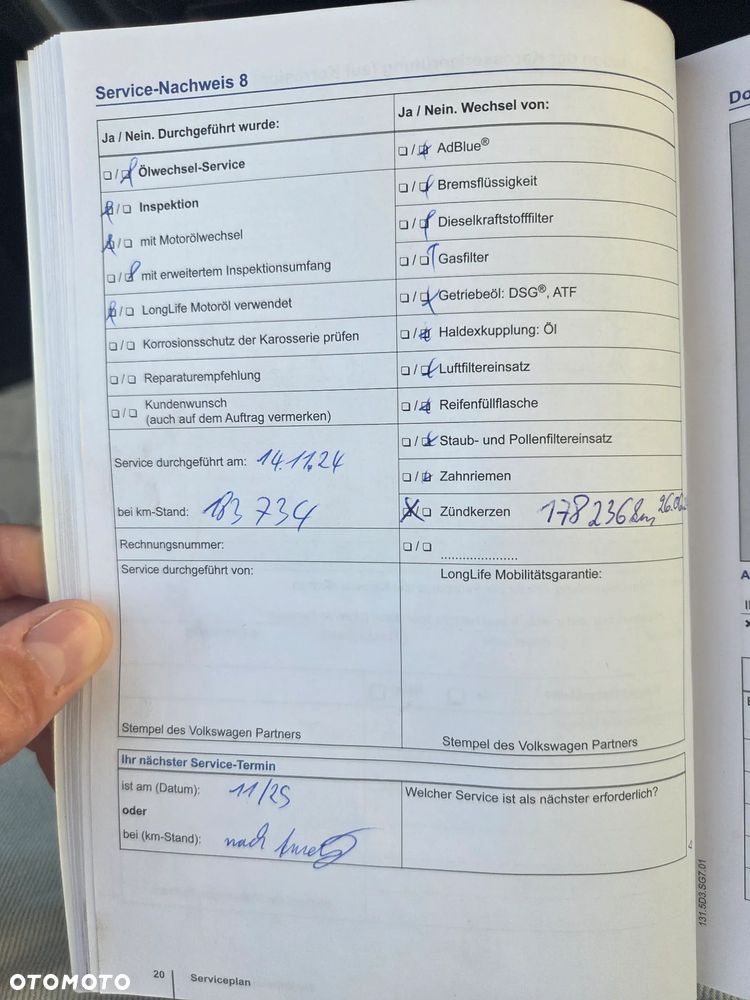 Service-Nachweis 8
Ja / Nein. Durchgeführt wurde:
☐ / ☒ Ölwechsel-Service
☒ / ☐ Inspektion
☒ / ☐ mit Motorölwechsel
☐ / ☒ mit erweitertem Inspektionsumfang
☒ / ☐ LongLife Motoröl verwendet
☐ / ☐ Korrosionsschutz der Karosserie prüfen
☐ / ☐ Reparaturempfehlung
☐ / ☐ Kundenwunsch
(auch auf dem Auftrag vermerken)
Service durchgeführt am: 14.11.24
bei km-Stand: 183 734
Rechnungsnummer:
Service durchgeführt von:
Stempel des Volkswagen Partners
Ja / Nein. Wechsel von:
☐ / ☒ AdBlue®
☐ / ☒ Bremsflüssigkeit
☐ / ☒ Dieselkraftstofffilter
☐ / ☒ Gasfilter
☐ / ☒ Getriebeöl: DSG®, ATF
☐ / ☒ Haldexkupplung: Öl
☐ / ☒ Luftfiltereinsatz
☐ / ☒ Reifenfüllflasche
☐ / ☒ Staub- und Pollenfiltereinsatz
☐ / ☒ Zahnriemen
☒ / ☐ Zündkerzen 178 236 km 26.06
☐ / ☐ ....................
LongLife Mobilitätsgarantie:
Stempel des Volkswagen Partners
Ihr nächster Service-Termin
ist am (Datum): 11/25
oder
bei (km-Stand): nach
Welcher Service ist als nächster erforderlich?
131.5D3.SG7.01
20 Serviceplan
Do
OTOMOTO